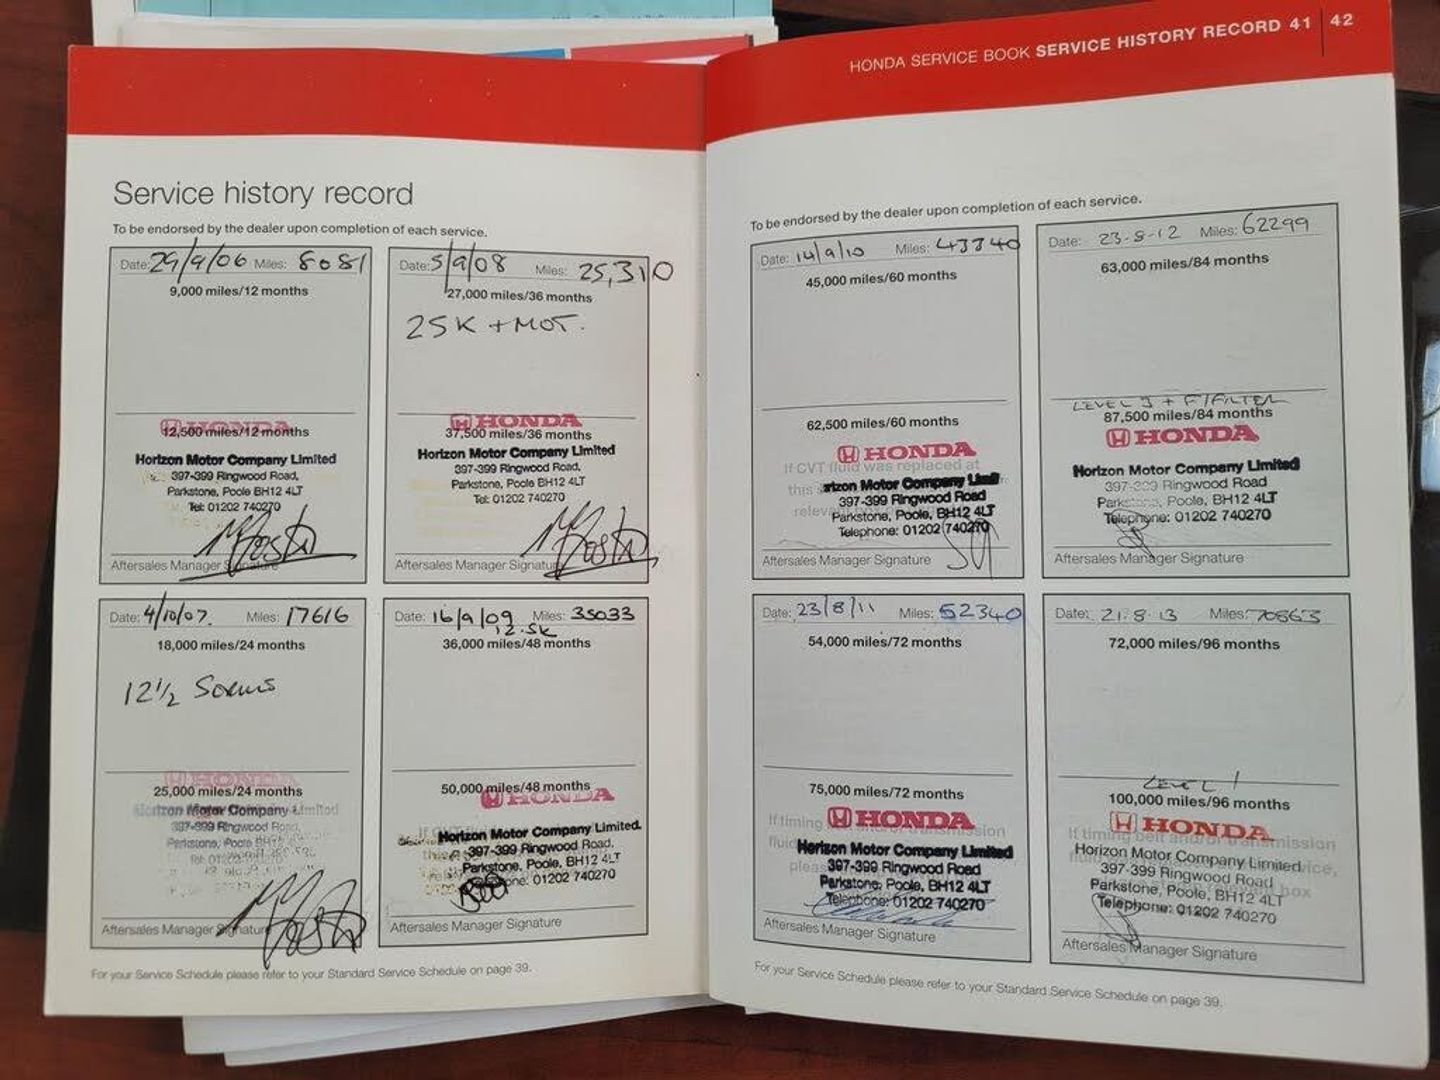 HONDA SERVICE BOOK SERVICE HISTORY RECORD 41 42
Service history record
To be endorsed by the dealer upon completion of each service.
Date: 29/9/06 Miles: 8081
9,000 miles/12 months
HONDA
12,500 miles/12 months
Horizon Motor Company Limited
397-399 Ringwood Road,
Parkstone, Poole BH12 4LT
Tel: 01202 740270
Aftersales Manager Signature
Date: 5/9/08 Miles: 25,310
27,000 miles/36 months
25K + MOT.
HONDA
37,500 miles/36 months
Horizon Motor Company Limited
397-399 Ringwood Road,
Parkstone, Poole BH12 4LT
Tel: 01202 740270
Aftersales Manager Signature
Date: 4/10/07. Miles: 17616
18,000 miles/24 months
12 1/2
HONDA
25,000 miles/24 months
Horizon Motor Company Limited
397-399 Ringwood Road,
Parkstone, Poole BH12
Aftersales Manager Signature
Date: 16/9/09 Miles: 35033
12.5K
36,000 miles/48 months
50,000 miles/48 months
HONDA
Horizon Motor Company Limited.
397-399 Ringwood Road,
Parkstone, Poole, BH12 4LT
01202 740270
Aftersales Manager Signature
For your Service Schedule please refer to your Standard Service Schedule on page 39.
To be endorsed by the dealer upon completion of each service.
Date: 14/9/10 Miles: 43340
45,000 miles/60 months
62,500 miles/60 months
HONDA
If CVT fluid was replaced at
this
Horizon Motor Company
397-399 Ringwood Road
Parkstone, Poole, BH12 4LT
Telephone: 01202 740270
Aftersales Manager Signature
Date: 23-8-12 Miles: 62299
63,000 miles/84 months
LEVEL + F/FILTER
87,500 miles/84 months
HONDA
Horizon Motor Company Limited
397-399 Ringwood Road
Parkstone, Poole, BH12 4LT
Telephone: 01202 740270
Aftersales Manager Signature
Date: 23/8/11 Miles: 52340
54,000 miles/72 months
75,000 miles/72 months
HONDA
If timing and/or transmission
Horizon Motor Company Limited
397-399 Ringwood Road
Parkstone, Poole, BH12 4LT
Telephone: 01202 740270
Aftersales Manager Signature
Date: 21.8.13 Miles: 70863
72,000 miles/96 months
LEVEL 1
100,000 miles/96 months
HONDA
If timing belt and/or transmission
Horizon Motor Company Limited
397-399 Ringwood Road
Parkstone, Poole, BH12 4LT
Telephone: 01202 740270
Aftersales Manager Signature
For your Service Schedule please refer to your Standard Service Schedule on page 39.